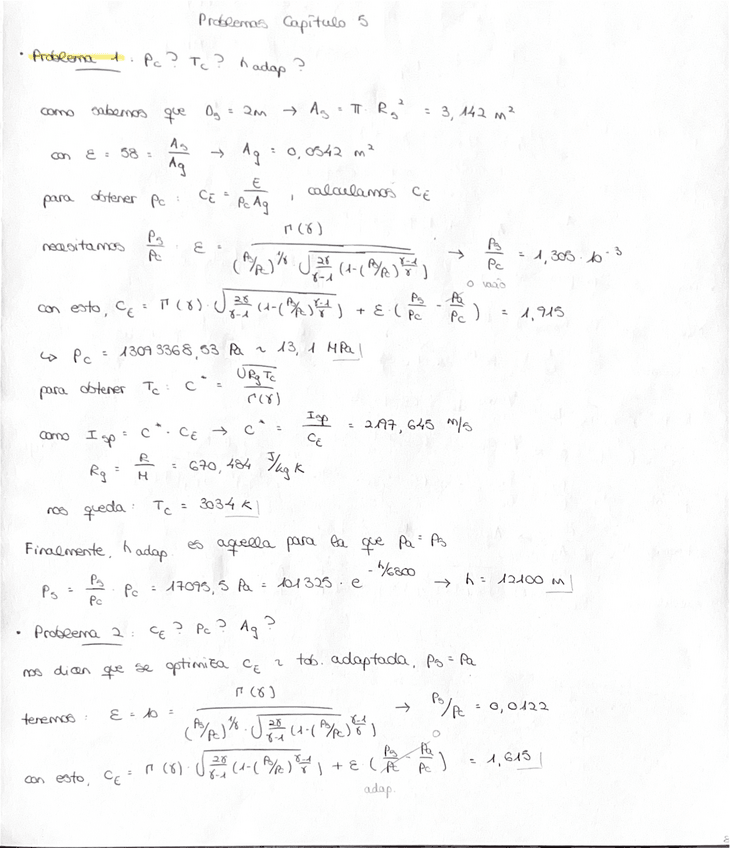 Problemas Capítulo 5
• Problema 1. Pc? Tc? h adap?
como sabemos que Ds = 2m → As = π · Rs² = 3,142 m²
con ε = 58 = As/Ag → Ag = 0,0542 m²
para obtener pc: CE = E/(Pc Ag), calculamos CE
necesitamos Ps/Pc · ε = Γ(γ) / ((Ps/Pc)^(1/γ) √(2γ/(γ-1) (1-(Ps/Pc)^((γ-1)/γ)))) → Ps/Pc = 1,305·10^-3
con esto, CE = Γ(γ) · √(2γ/(γ-1) (1-(Ps/Pc)^((γ-1)/γ))) + ε · (Ps/Pc - Pa/Pc) = 1,915
0 vacío
↳ Pc = 13093368,53 Pa ~ 13,1 MPa
para obtener Tc: C* = √(Rg Tc)/Γ(γ)
como Isp = C* · CE → C* = Isp/CE = 2197,645 m/s
Rg = R/M = 670,484 J/kg K
nos queda: Tc = 3034 K
Finalmente, h adap. es aquella para la que Pa = Ps
Ps = Ps/Pc · Pc = 17095,5 Pa = 101325 · e^(-h/6800) → h = 12100 m
• Problema 2: CE? Pc? Ag?
nos dicen que se optimiza CE ~ tob. adaptada, Ps = Pa
tenemos: ε = 10 = Γ(γ) / ((Ps/Pc)^(1/γ) · √(2γ/(γ-1) (1-(Ps/Pc)^((γ-1)/γ)))) → Ps/Pc = 0,0122
con esto, CE = Γ(γ) · √(2γ/(γ-1) (1-(Ps/Pc)^((γ-1)/γ))) + ε (Ps/Pc - Pa/Pc) = 1,615
0
adap.